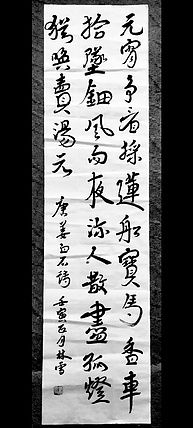 元宵争看採蓮船寶馬香車
拾墜鈿風雨夜深人散盡孤燈
猶喚賣湯元
唐姜白石詩 壬寅正月林雪